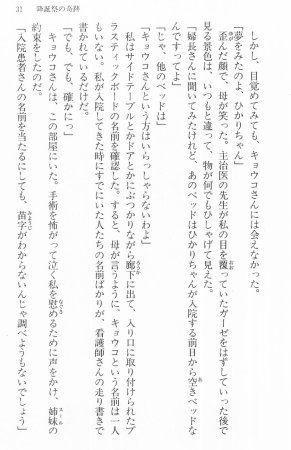 31　降誕祭の奇跡
しかし、目覚めてみても、キョウコさんには会えなかった。
「夢をみたのよ、ひかりちゃん」
歪んだ顔で、母が笑った。主治医の先生が私の目を覆っていたガーゼをはずしていった後で
見る景色は、いつもと違って、物が何でもひしゃげて見えた。
「婦長さんに聞いてみたけれど、あのベッドはひかりちゃんが入院する前日から空きベッドな
んですってよ」
「じゃ、他のベッドは」
「キョウコさんという方はいらっしゃらないわよ」
私はサイドテーブルとかドアとかにぶつかりながら廊下に出て、入り口に取り付けられたプ
ラスティックボードの名前を確認した。すると、母が言うように、キョウコという名前は一人
もいない。私が入院してきた時にすでにいた人たちの名前ばかりが、看護師さんの走り書きで
書かれているだけだ。
「でも、でも、確かにっ」
キョウコさんは、この部屋にいた。手術を怖がって泣く私を慰めるために声をかけ、姉妹の
約束をしたのだ。
「入院患者さんの名前を当たるにしても、苗字がわからないんじゃ調べようもないでしょう」